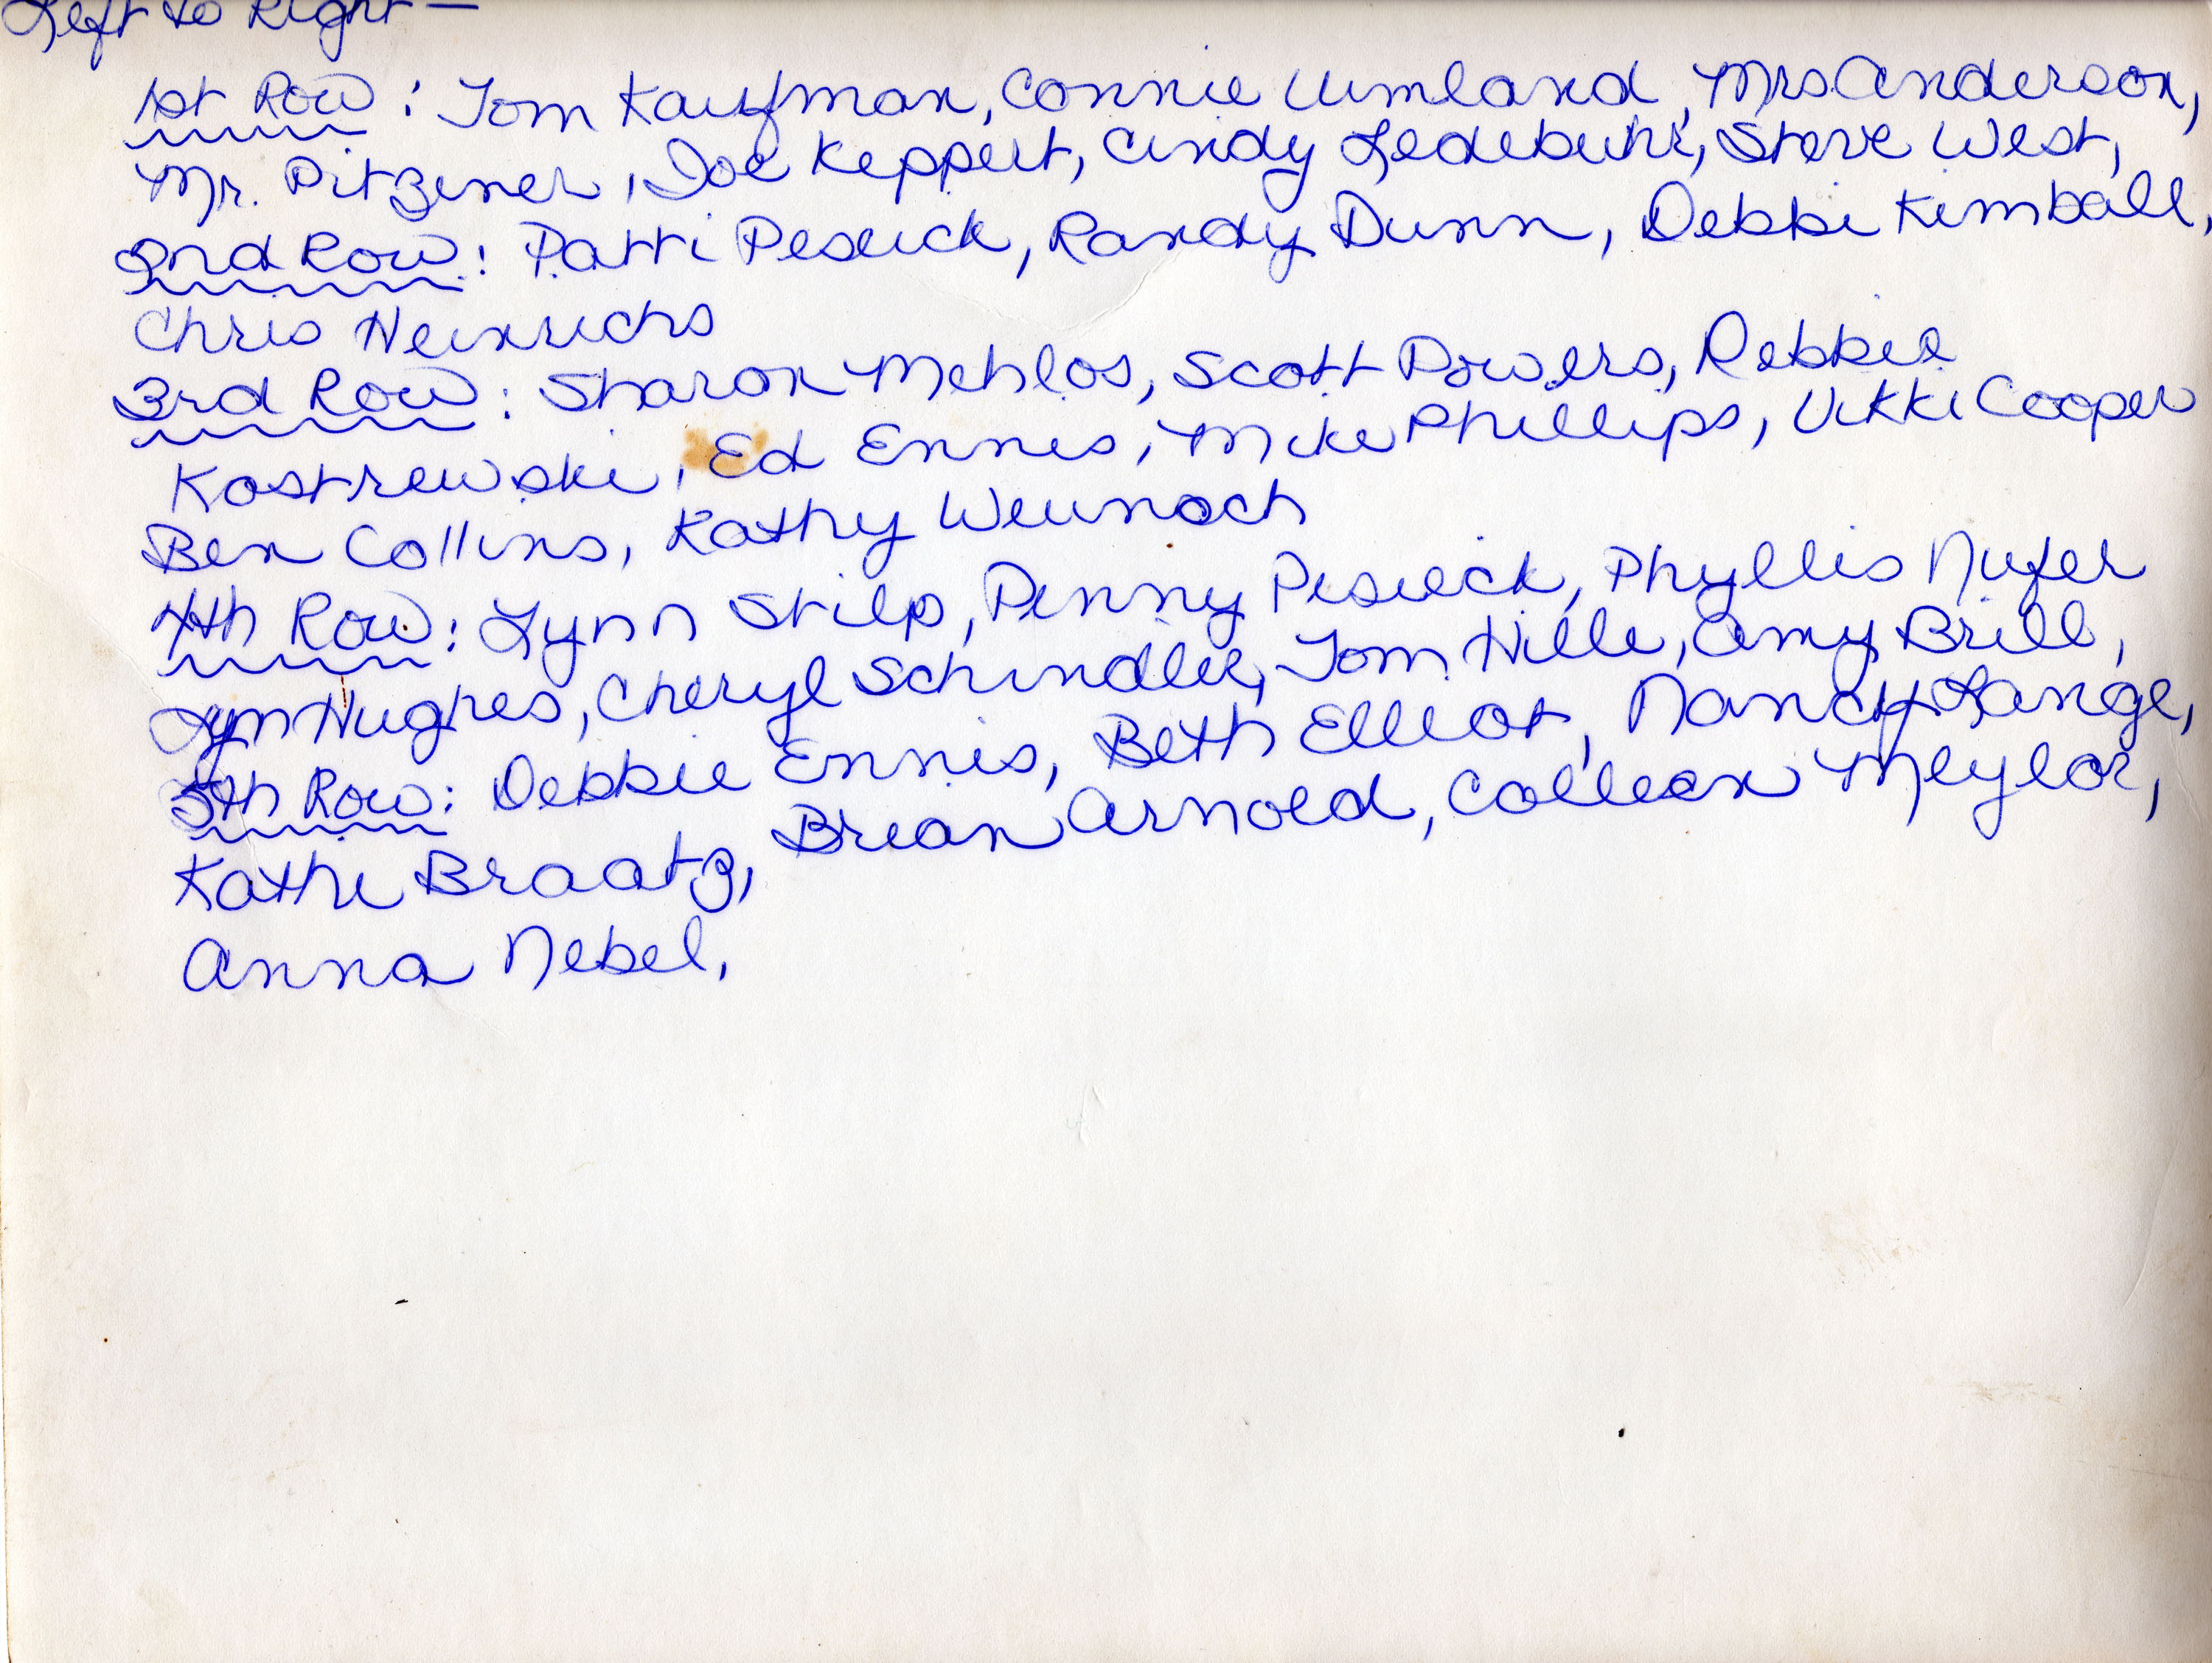 Left to Right —
1st Row: Tom Kaufman, Connie Umland, Mrs. Anderson,
Mr. Pitzener, Joe Keppert, Cindy Ledebuhr, Steve West,
2nd Row: Patti Pesieck, Randy Dunn, Debbi Kimball,
Chris Heinrichs
3rd Row: Sharon Mehlos, Scott Powers, Debbie
Kostrewski, Ed Ennis, Mike Phillips, Vikki Cooper
Ben Collins, Kathy
4th Row: Lynn Stilp, Penny Pesieck, Phyllis Nufer
Lyn Hughes, Cheryl Schindler, Tom Hille, Amy Brill,
5th Row: Debbie Ennis, Beth Elliot, Nancy Lange,
Kathi Braatz, Brian Arnold, Colleen Meylor,
Anna Nebel,